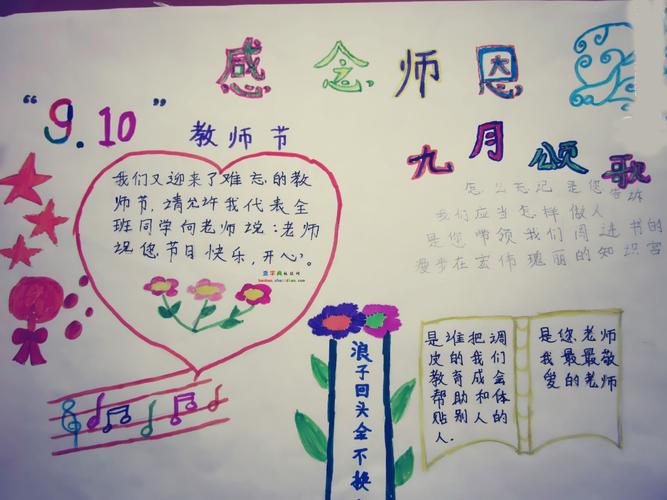 感念师恩
“9.10”
教师节
九月颂歌
我们又迎来了难忘的教
师节,请允许我代表全
班同学向老师说:老师
祝您节日快乐,开心。
怎么忘记 是您告诉
我们应当怎样做人
是您带领我们周进书的
漫步在宏伟瑰丽的知识宫
浪子回头金不换
是谁把调
皮的我们
教育成会
帮助和体
贴别人的
人.
是您老师
我最最敬
爱的老师